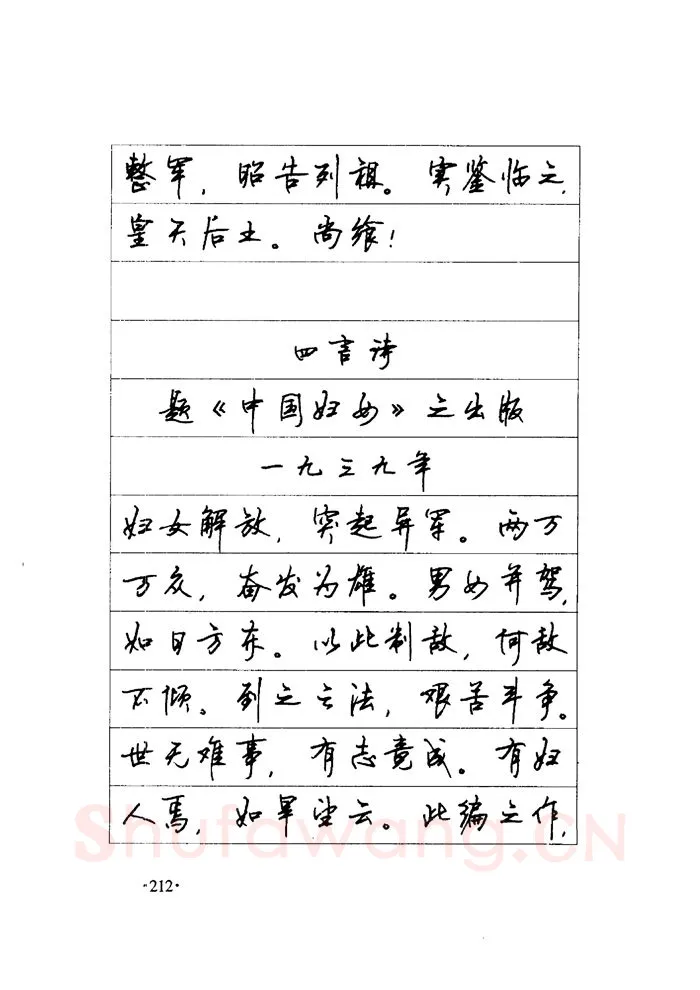 整军，昭告列祖。实鉴临之，
皇天后土。尚飨！
四言诗
题《中国妇女》之出版
一九三九年
妇女解放，突起异军。两万
万众，奋发为雄。男女并驾，
如日方东。以此制敌，何敌
不倾。到之之法，艰苦斗争。
世无难事，有志竟成。有妇
人焉，如旱望云。此编之作，
Shufawang.CN
·212·